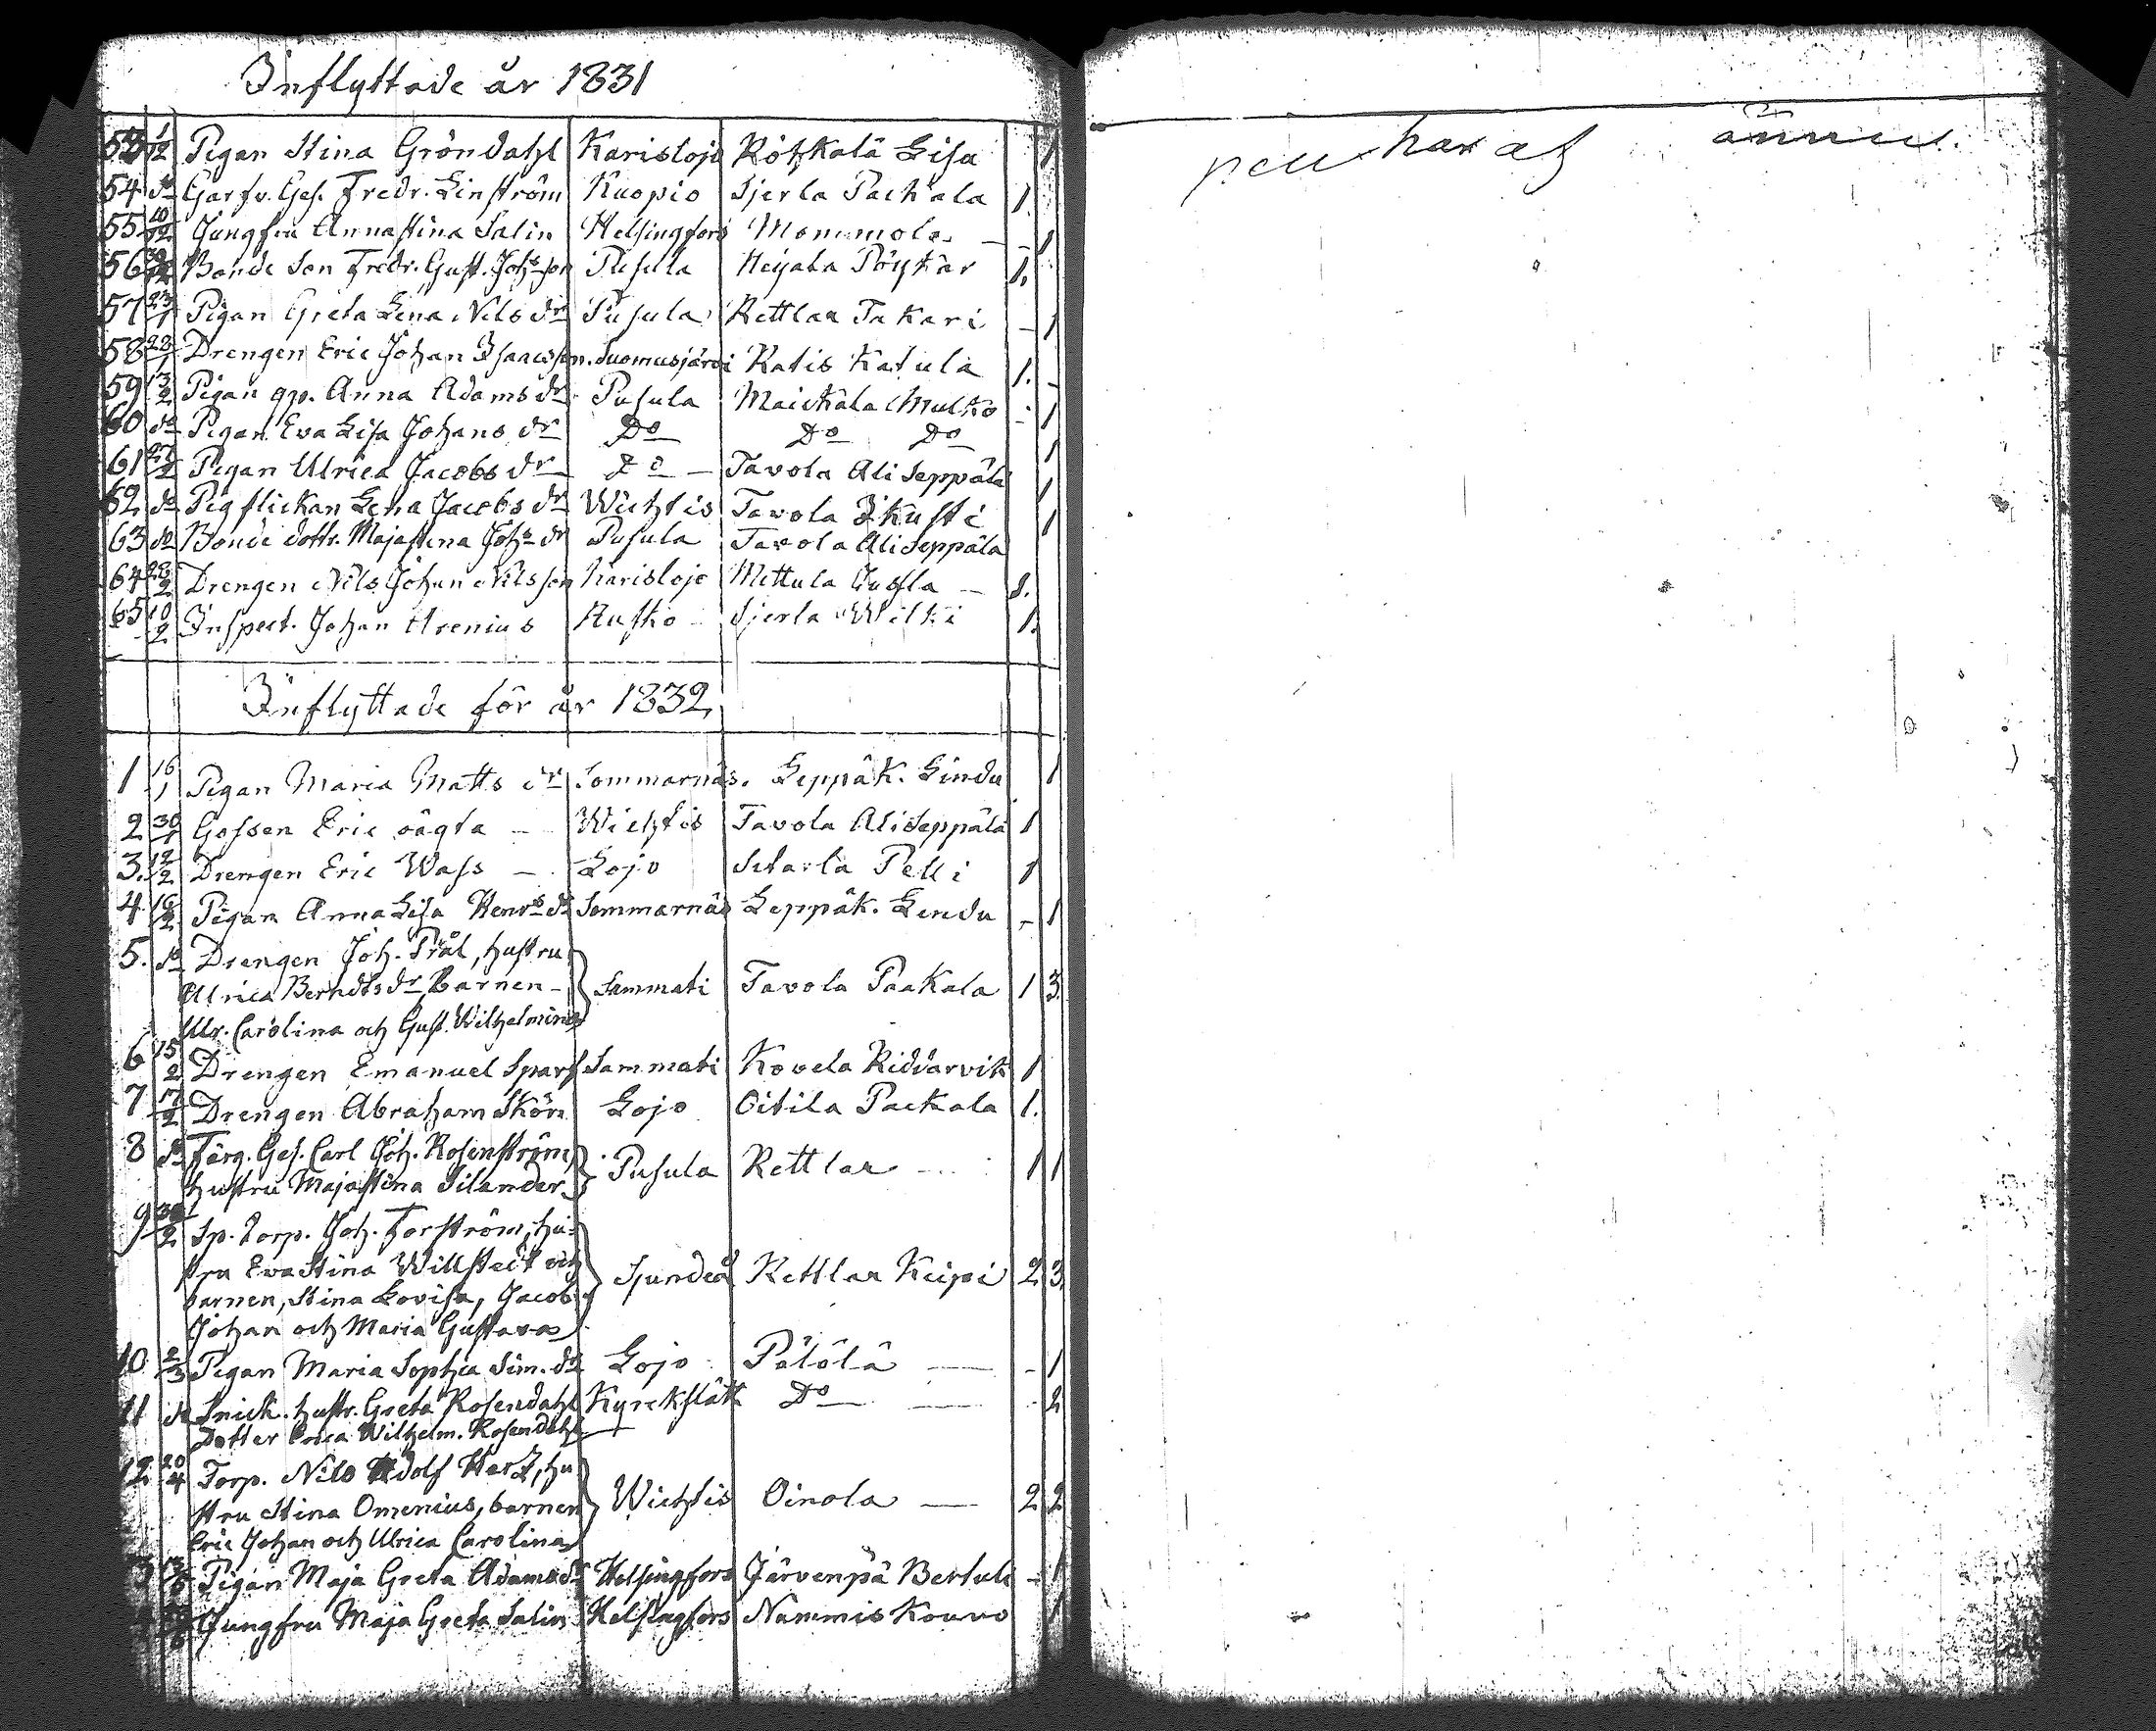 Inflyttade år 1831
53 1/12 Pigan Stina Gröndahl Karislojo Röhkälä Lisa 1
54 do Garfv. Ges. Fredr. Linström Kuopio Sjerla Packala 1.
55 10/12 Jungfru Annastina Salin Helsingfors Mommola - 1
56 Bonde Son Fredr. Gust. Johsson Pusula Heijala Pöykär 1.
57 23/1 Pigan Greta Lena Nils dr Pusula Kettlar Takari - 1
58 28/1 Drengen Eric Johan Isaacsson. Suomusjärvi Katis Katula 1. -
59 13/2 Pigan gp. Anna Adams dr Pusula Maickala Mulko - 1
60 do Pigan Eva Lisa Johans dr Do Do Do 1
61 27/2 Pigan Ulrica Jacobs dr Do - Tavola Ali Seppälä 1
62 do Pigflickan Lena Jacobs dr Wichtis Tavola Ikusti 1
63 do Bonde dottr. Majastina Johs dr Pusula Tavola Ali Seppälä
64 28/2 Drengen Nils Johan Nilsson Karislojo Mettula Jussla - 1.
65 10/2 Inspect. Johan Arenius Rusko Sjerla Wilki 1.
Inflyttade för år 1832
1 16/1 Pigan Maria Matts dr Sommarnäs. Leppäk. Lindu 1
2 30/1 Gossen Eric oägta - Wichtis Tavola Ali Seppälä 1
3. 12/2 Drengen Eric Wass - Lojo Setarla Pelli 1
4. 16/2 Pigan Anna Lisa Henrs dr Sommarnäs Leppäk. Lindu - 1
5. do Drengen Joh. Prål, hustru
Ulrica Berndts dr, barnen - Sammati Tavola Paakala 1 3.
Ulr. Carolina och Gust. Wilhelmina
6 15/2 Drengen Emanuel Sparf Sammati Kovela Riddarvik 1
7 17/2 Drengen Abraham Skön Lojo Oitila Packala 1.
8 do Färg. Ges. Carl Joh. Rosenström,
hustru Majastina Silander Pusula Kettlar 1 1
9 /2 Sp. Torp. Joh. Forström, hu-
stru Evastina Willstedt och
barnen, Stina Lovisa, Jacob Sjundeå Kettlar Keipi 2 3
Johan och Maria Gustava
10 2/3 Pigan Maria Sophia Sim. dr Lojo Pälölä - - 1
11 do Snick. hustr. Greta Rosendahl Kyrckslätt Do - - 2
Dotter Erica Wilhelm. Rosendahl
12 20/4 Torp. Nils Adolf Hertz, hu
stru Stina Omenius, barnen Wichtis Oinola - 2 2
Eric Johan och Ulrica Carolina
Pigan Maja Greta Adams dr Helsingfors Järvenpä Bertuli - 1
Jungfru Maja Greta Salin Helsingfors Nummis Kouvo 1
har af